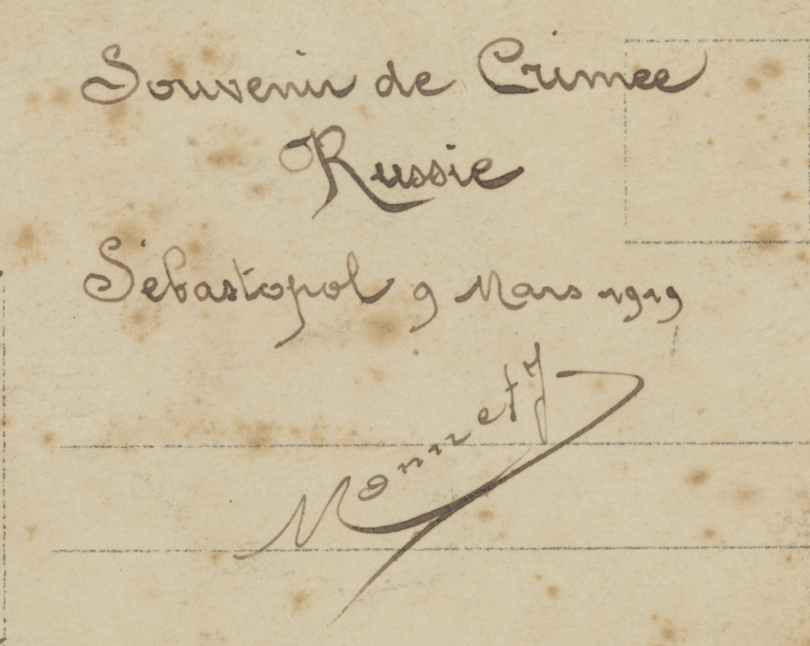 Souvenir de Crimee
Russie
Sébastopol 9 Mars 1919
Monnet J